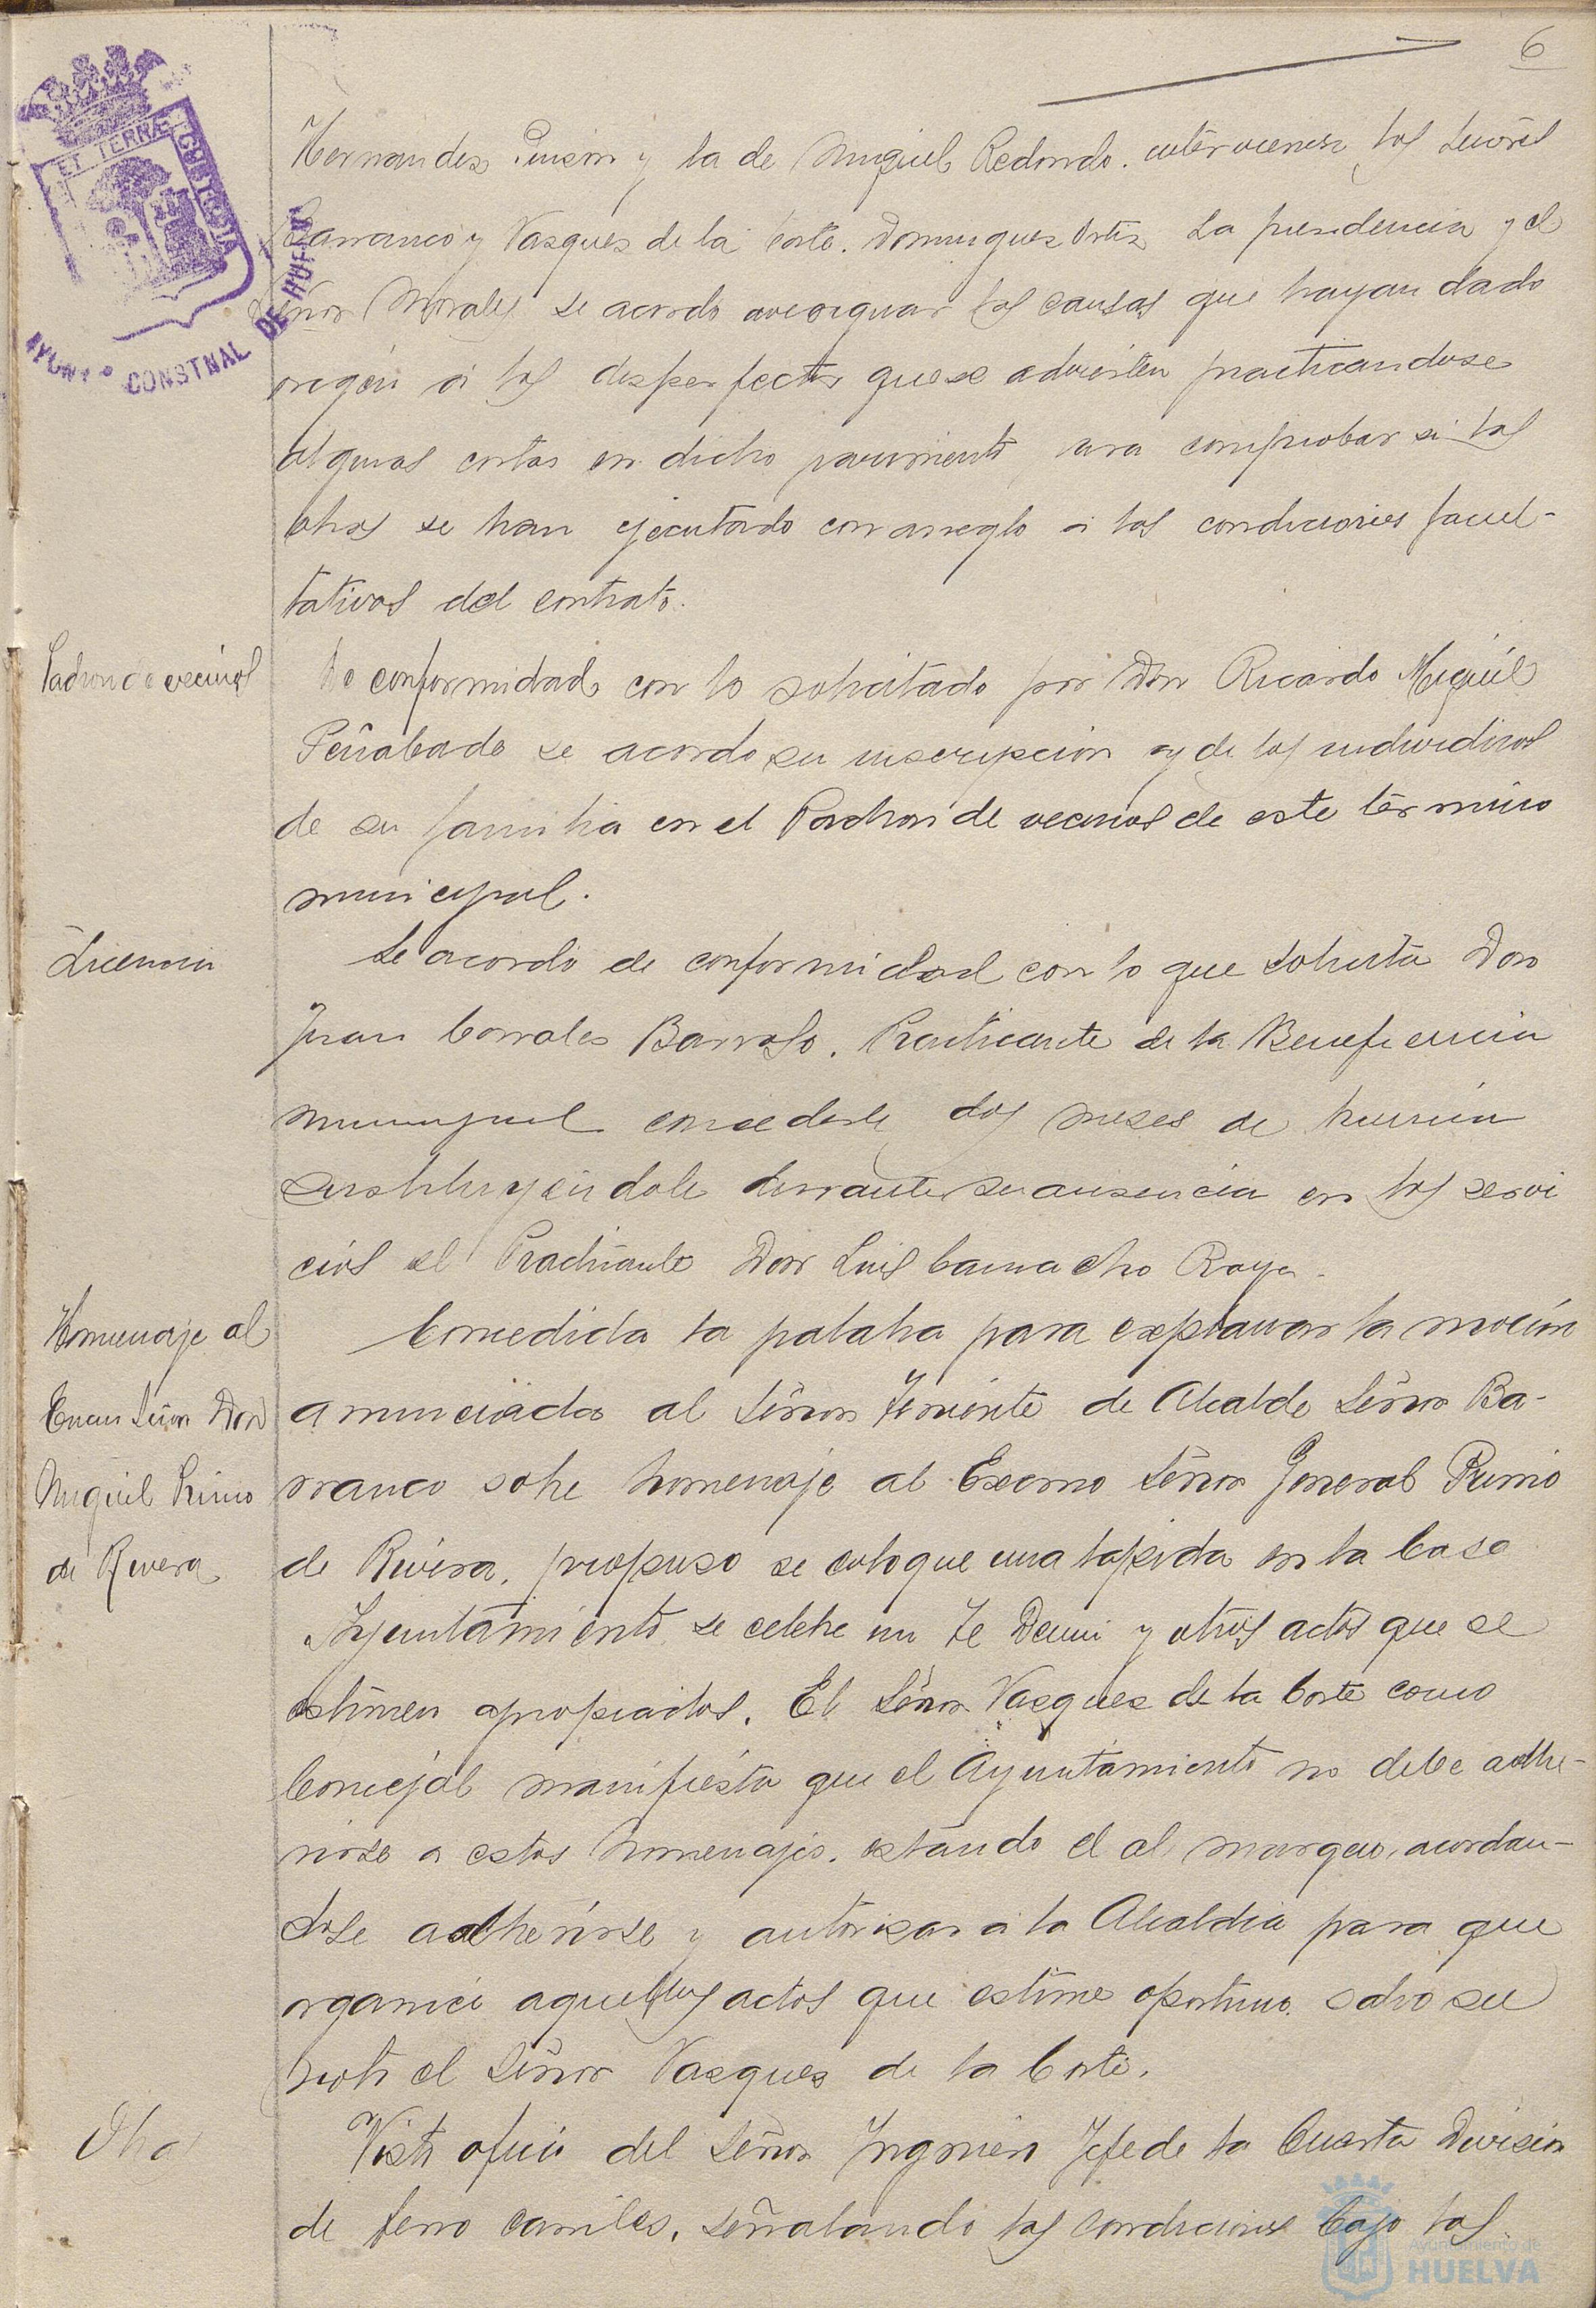 6
ET TERRÆ
CUSTODIA
AYUNTº CONSTNAL DE HUELVA
Hernandez Pinzon y la de Miguel Redondo. intervienen los Señores
Barranco y Vazquez de la Corte. Dominguez Ortiz La presidencia y el
Señor Morales se acordo averiguar las causas que hayan dado
origen á los desperfectos que se advierten practicandose
algunas catas en dicho pavimento para comprobar si las
obras se han ejecutado con arreglo á las condiciones facul-
tativas del contrato.
Padron de vecinos
De conformidad con lo solicitado por Don Ricardo Miguél
Peñabade se acordo su inscripcion y de los individuos
de su familia en el Padron de vecinos de este término
municipal.
Licencia
Se acordó de conformidad con lo que solicita Don
Juan Corrales Barroso. Practicante de la Beneficencia
municipal concederle dos meses de licencia
sustituyéndole durante su ausencia en los servi
cios el Practicante Don Luis Camacho Raya.
Homenaje al
Excmo Señor Don
Miguel Primo
de Rivera
Concedida la palabra para explanar la moción
anunciada al Señor Teniente de Alcalde Señor Ba-
rranco sobre homenaje al Excmo Señor General Primo
de Rivera, propuso se coloque una lapida en la Casa
Ayuntamiento se celebre un Te Deum y otros actos que se
estimen apropiados. El Señor Vazquez de la Corte como
Concejal manifiesta que el Ayuntamiento no debe adhe-
rirse a estos homenajes. estando el al margen, acordan-
dose adherirse y autorizar á la Alcaldia para que
organice aquellos actos que estime oportuno. salvo su
voto el Señor Vazquez de la Corte.
Otro
Visto oficio del Señor Ingeniero Jefe de la Cuarta Division
de ferro carriles, señalando las condiciones bajo las
Ayuntamiento de
HUELVA